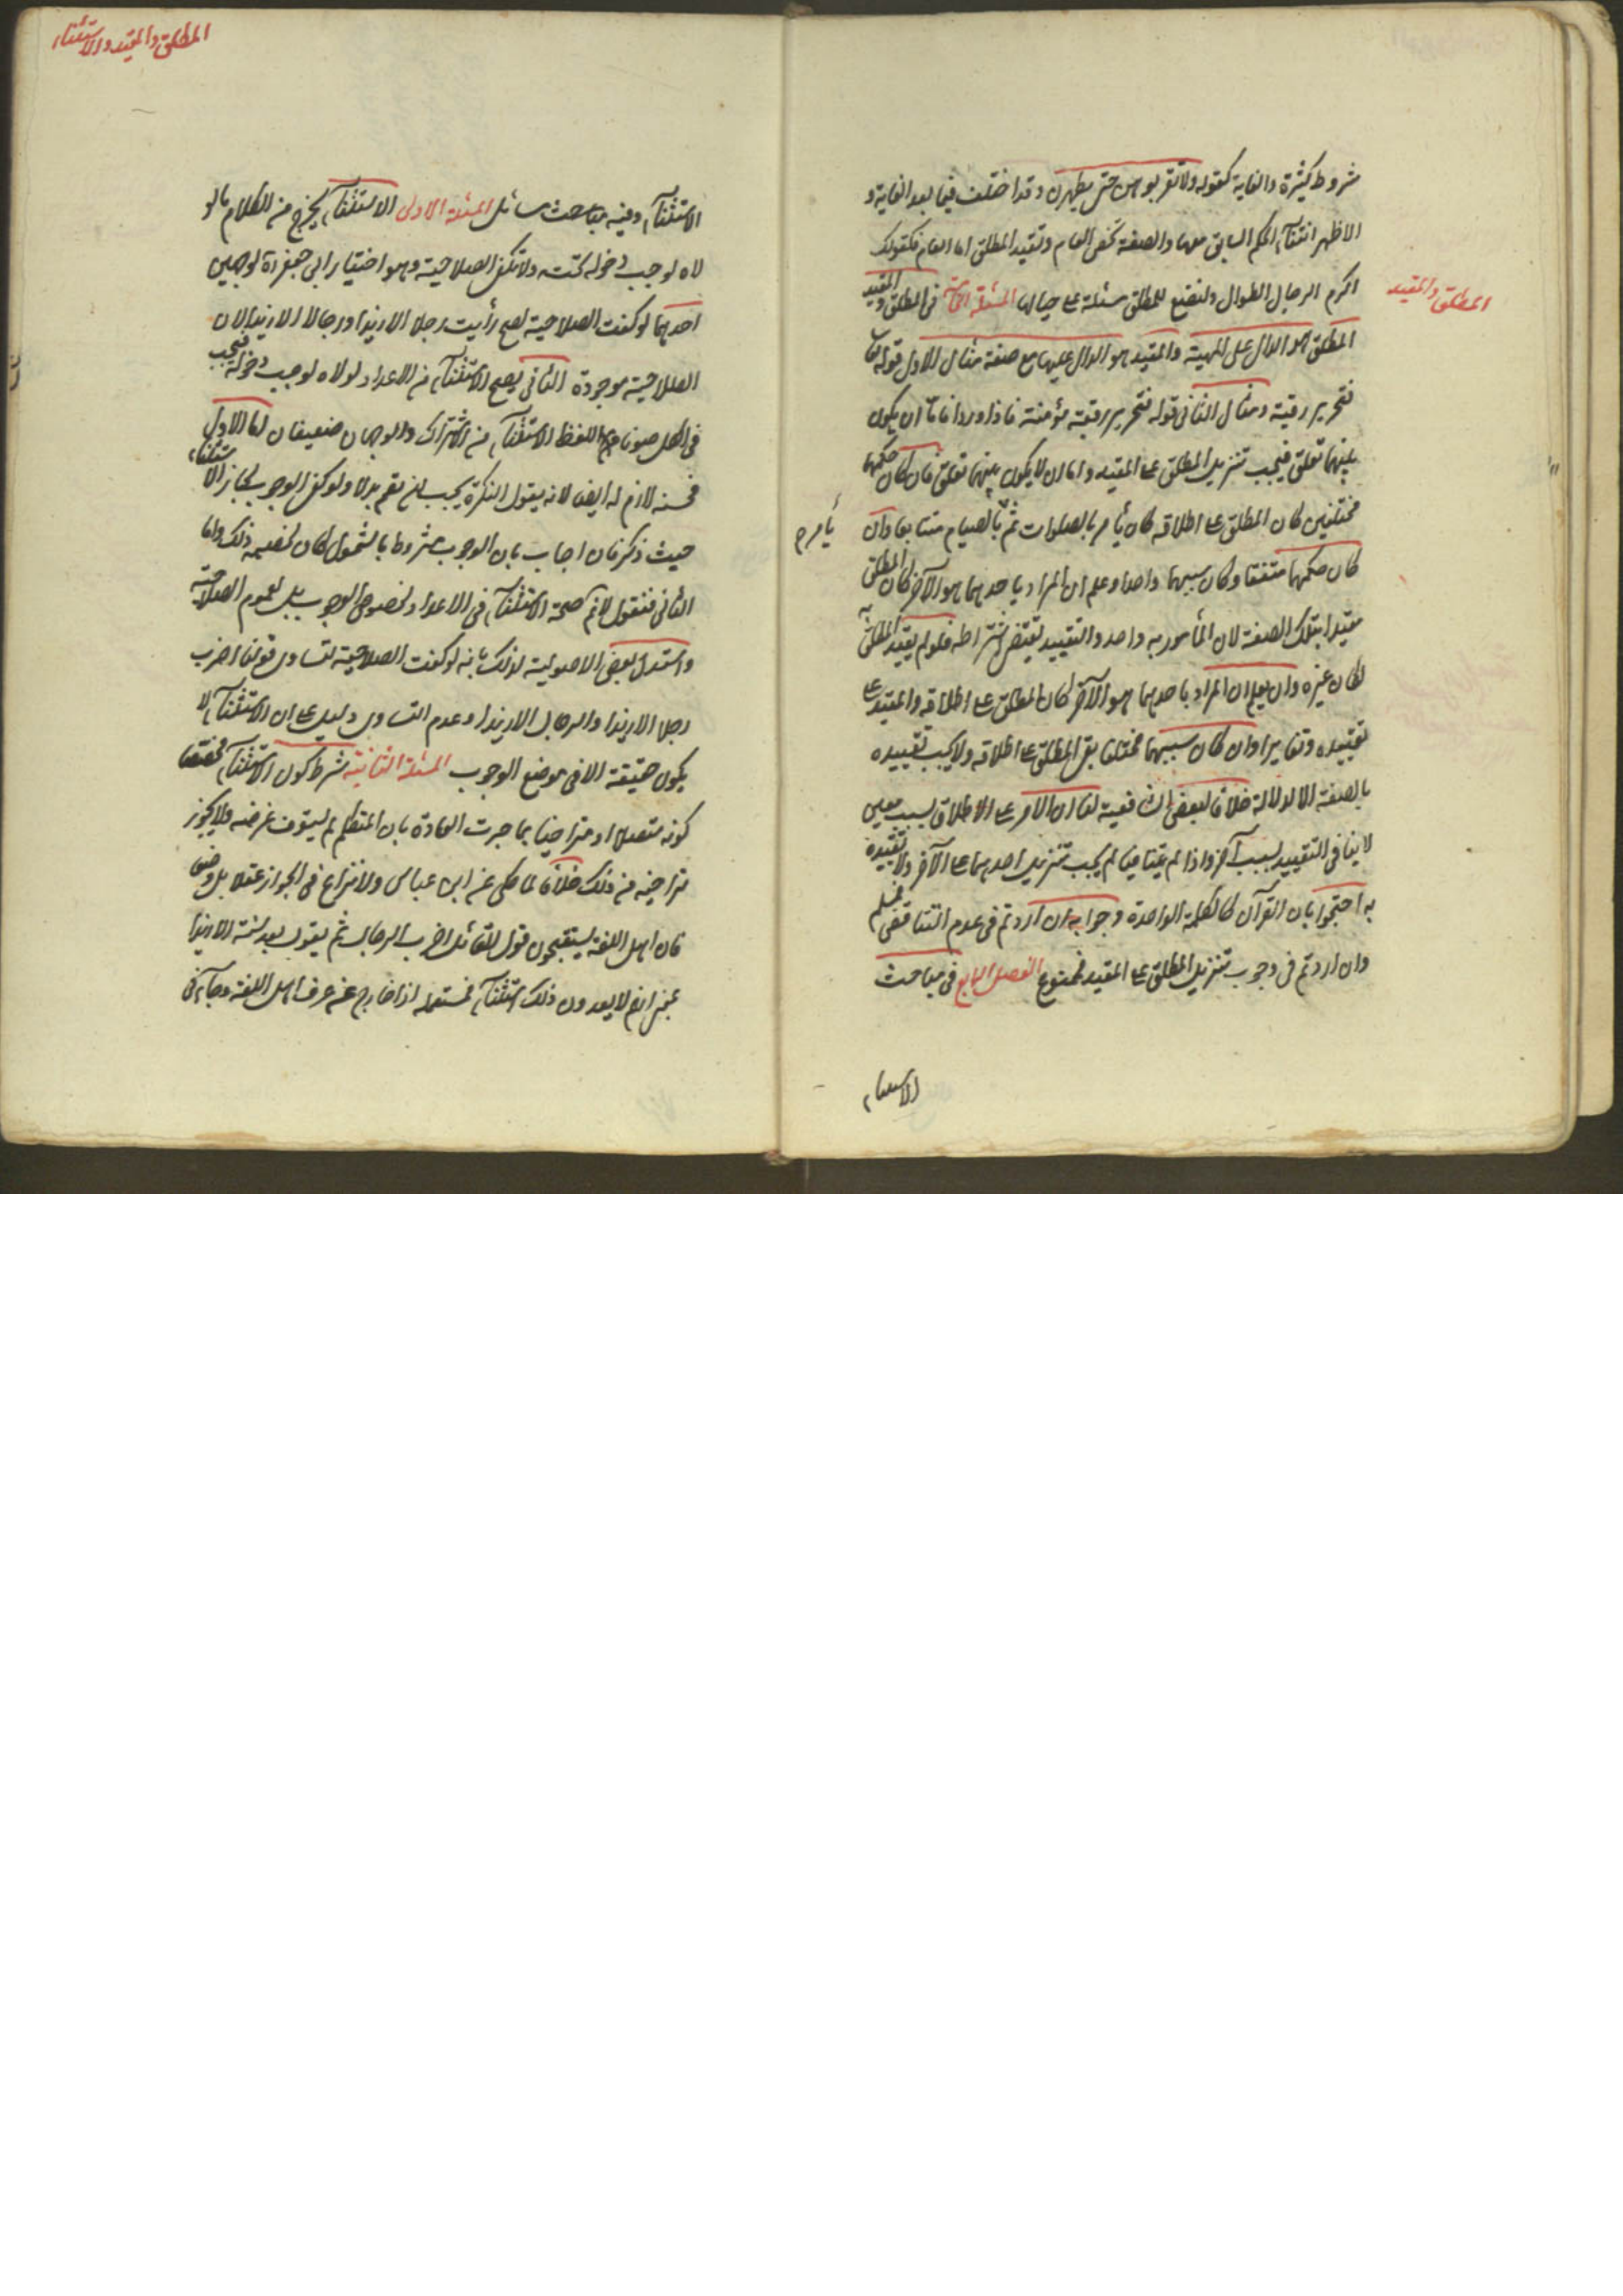 شروط كثيرة والغاية كقوله ولا تقربوهن حتى يطهرن وقد اختلف فيما بعد الغاية و
الاظهر انتفآء الحكم السابق معها والصفة تخص العام وتقيد المطلق اما العام فكقولك
اكرم الرجال الطوال ولنضع للمطلق مسئلة على حيالها المسئلة في المطلق والمقيد
المطلق والمقيد
المطلق هو الدال على المهية والمقيد هو الدال عليها مع صفة مثال الاول قوله تعالى
فتحرير رقبة ومثال الثانى قوله فتحرير رقبة مؤمنة فاذا وردا فاما ان يكون
بينهما تعلق فيجب تنزيل المطلق على المقيد واما ان لا يكون بينهما تعلق فان كان حكمهما
مختلفين كان المطلق على اطلاقه كان يأمر بالصلوات ثم بالصيام متتابعا وان
يأمرهم
كان حكمهما متفقا وكان سببهما واحدا وعلم ان المراد باحدهما هو الآخر كان المطلق
مقيدا بتلك الصفة لان المأمور به واحد والتقييد يقتضى اشتراطه فلو لم يقيد المطلق به
لكان غيره وان لم يعلم ان المراد باحدهما هو الآخر كان المطلق على اطلاقه والمقيد على
تقييده وتغايرا وان كان سببهما مختلفا بقى المطلق على اطلاقه ولا يجب تقييده
بالصفة الا لدلالة خلافا لبعض الشافعية لنا ان الامر على الاطلاق بسبب معين
لا ينافى التقييد بسبب آخر واذا لم يتنافيا لم يجب تنزيل احدهما على الآخر ولا تقييده
به احتجوا بان القرآن كالكلمة الواحدة وجوابه ان اردتم فى عدم التناقض فمسلم
وان اردتم فى وجوب تنزيل المطلق على المقيد فممنوع الفصل الرابع فى مباحث
الاستثناء
المطلق والمقيد والاستثناء
الاستثنآء وفيه مباحث مسائل المسئلة الاولى الاستثنآء يخرج من الكلام ما لو
لاه لوجب دخوله تحته ولا تكفى الصلاحية وهو اختيار ابى جعفر ره لوجهين
احدهما لو كفت الصلاحية لصح رأيت رجلا الا زيدا ورجالا الا زيدا لان
الصلاحية موجودة الثانى يصح الاستثنآء من الاعداد لولاه لوجب دخوله فيجب
فى الكل صونا للفظ الاستثنآء من الاشتراك والوجهان ضعيفان اما الاول
فحسنه لازم له ايضا لانه يقول النكرة يجب ان تعم بدلا ولو كفى الوجوب لجاز الاستثناء
حيث ذكر فان اجاب بان الوجوب مشروط بالشمول كان لخصيمه ذلك واما
الثانى فنقول لا نم صحة الاستثنآء فى الاعداد لخصوص الوجوب بل لعموم الصلاحية
واستدل بعض الاصوليين لذلك بانه لو كفت الصلاحية لتساوى قولنا اضرب
رجلا الا زيدا والرجال الا زيدا وعدم التساوى دليل على ان الاستثنآء لا
يكون حقيقة الا فى موضع الوجوب المسئلة الثانية شرط كون الاستثنآء مخصصا
كونه متصلا او متراخيا بما جرت العادة بان المتكلم لم يستوف غرضه ولا يجوز
تراخيه من ذلك خلافا لما حكى عن ابن عباس ولا نزاع فى الجواز عقلا بل وضعا
فان اهل اللغة يستقبحون قول القائل اضرب الرجال ثم يقول بعد سنة الا زيدا
بمعنى انهم لا يعدون ذلك استثنآء فمستعمله اذا خارج عن عرف اهل اللغة وجآء فى